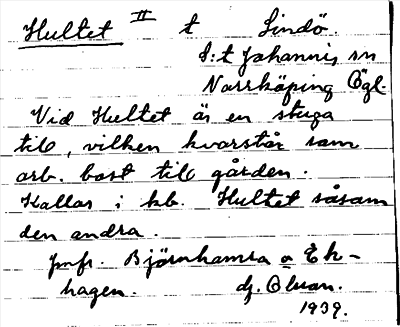 Hultet II t Lindö.
S:t Johannis sn
Norrköping Ögl.
Vid Hultet är en stuga
till, vilken kvarstår som
arb. bost till gården.
Kallas i kb. Hultet såsom
den andra.
Jmfr. Björnhamra o Ek-
hagen. dz. Olsson.
1939.